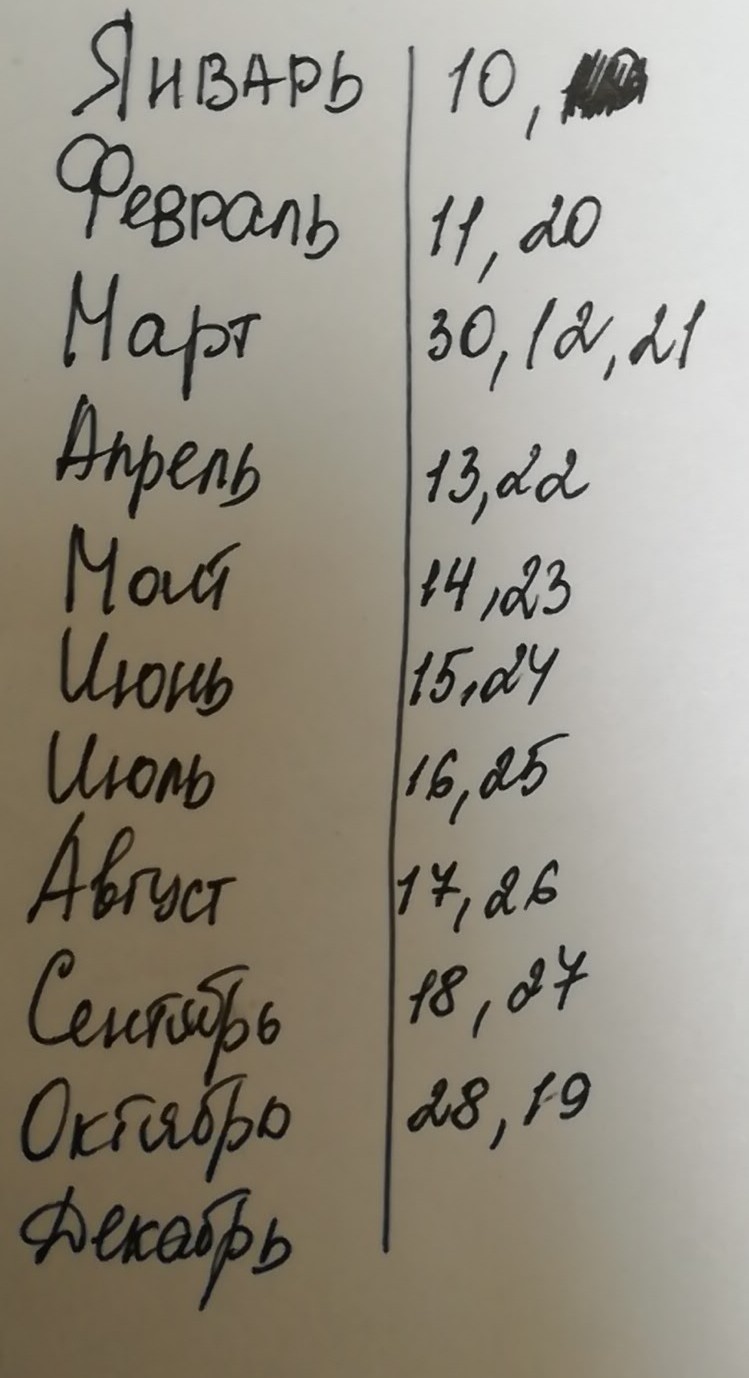 Январь 10,
Февраль 11, 20
Март 30, 12, 21
Апрель 13, 22
Май 14, 23
Июнь 15, 24
Июль 16, 25
Август 17, 26
Сентябрь 18, 27
Октябрь 28, 19
Декабрь